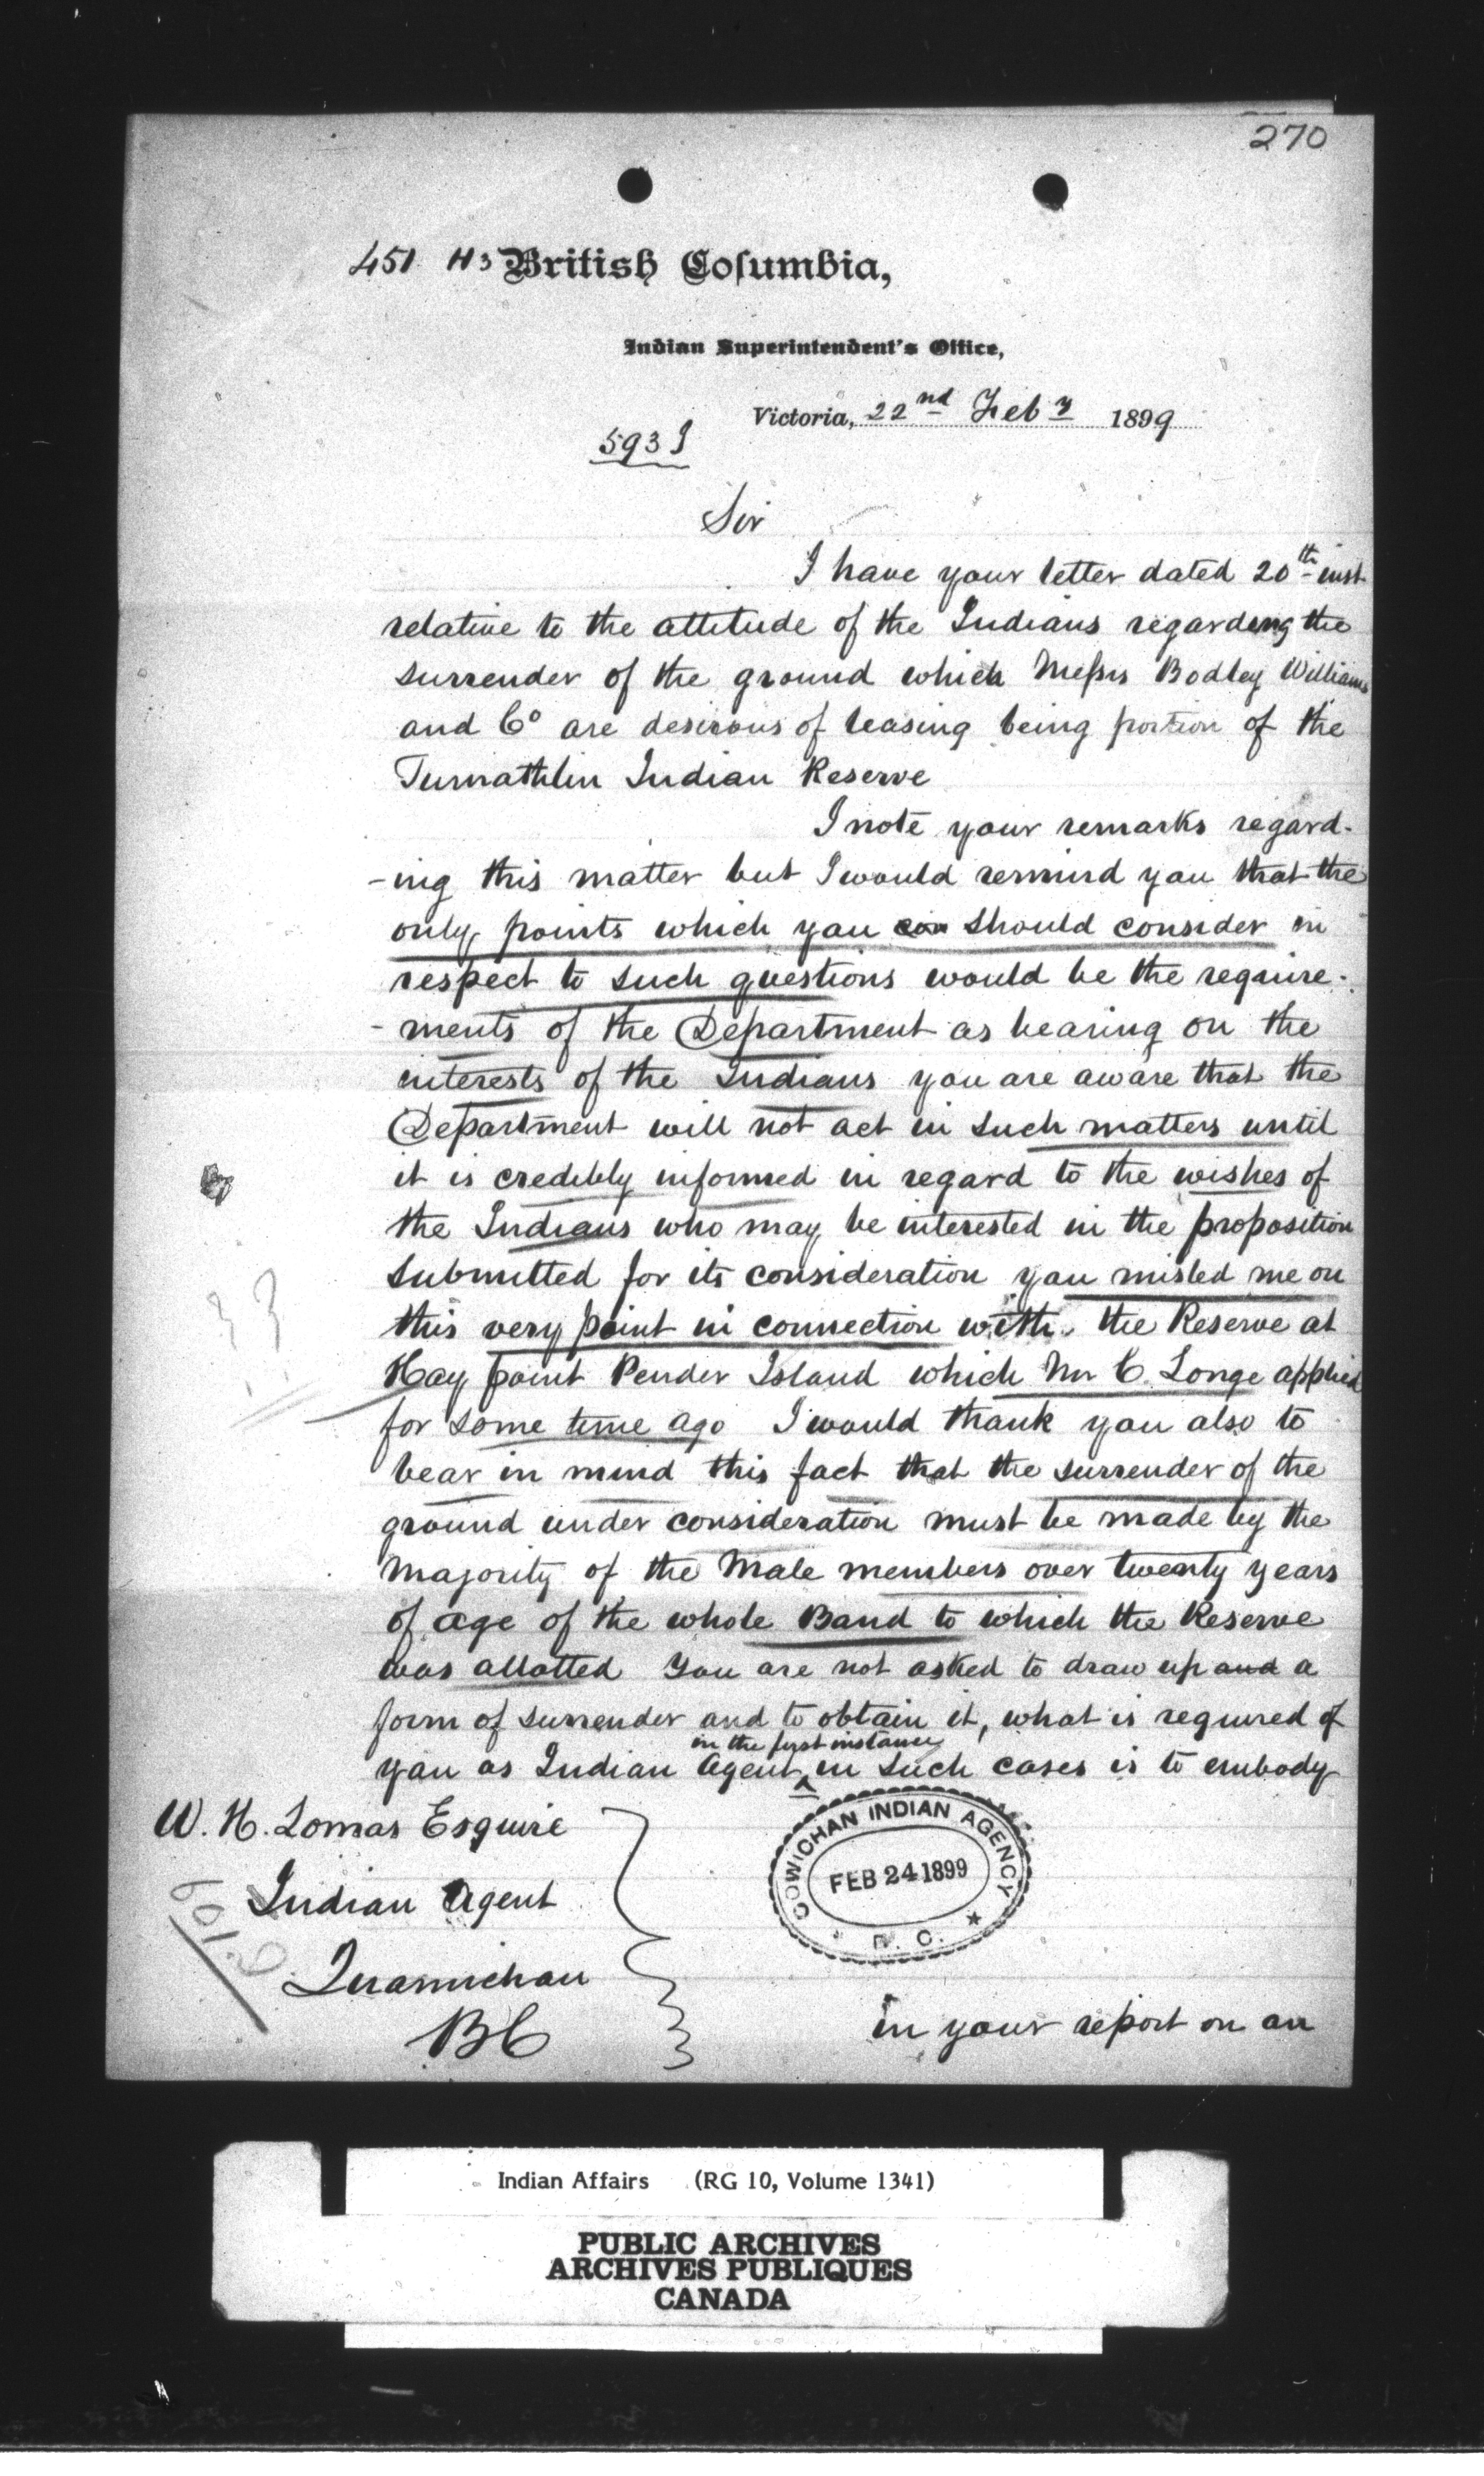 270
451 H3 British Columbia,
Indian Superintendent's Office,
Victoria, 22nd Feby 1899
593 J
Sir
I have your letter dated 20th inst
relative to the attitude of the Indians regarding the
surrender of the ground which Messrs Bodley Williams
and Co are desirous of leasing being portion of the
Tumathlin Indian Reserve
I note your remarks regard-
-ing this matter but I would remind you that the
only points which you con should consider in
respect to such questions would be the require-
-ments of the Department as bearing on the
interests of the Indians you are aware that the
Department will not act in such matters until
it is credibly informed in regard to the wishes of
the Indians who may be interested in the proposition
submitted for its consideration you misled me on
this very point in connection with the Reserve at
Hay point Pender Island which Mr C. Longe applied
for some time ago I would thank you also to
bear in mind this fact that the surrender of the
ground under consideration must be made by the
Majority of the Male members over twenty years
of age of the whole Band to which the Reserve
was allotted You are not asked to draw up and a
form of surrender and to obtain it, what is required of
in the first instance
you as Indian Agent in such cases is to embody
W. H. Lomas Esquire
Indian Agent
Quamichan
BC
COWICHAN INDIAN AGENCY
FEB 24 1899
B. C.
in your report on an
Indian Affairs (RG 10, Volume 1341)
PUBLIC ARCHIVES
ARCHIVES PUBLIQUES
CANADA